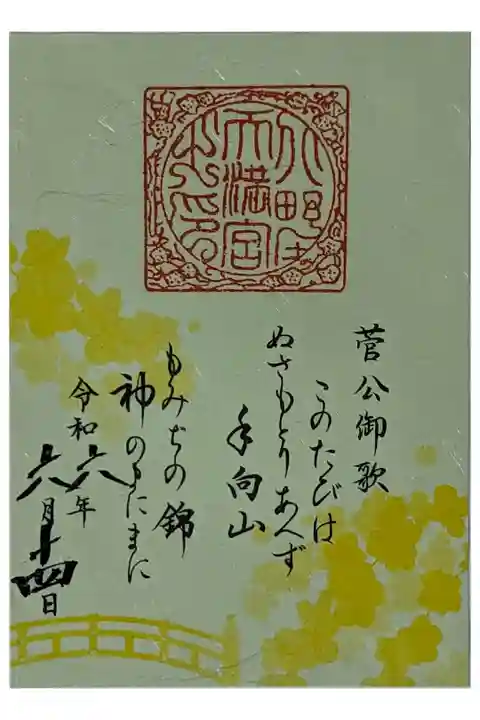 天満宮
之印
菅公御歌
このたびは
ぬさもとりあへず
手向山
もみぢの錦
神のまにまに
令和六年
六月十四日